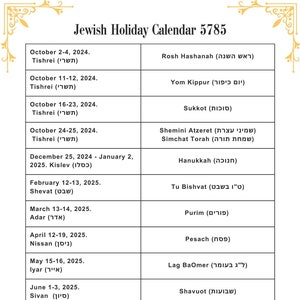 Jewish Holiday Calendar 5785
October 2-4, 2024.
Tishrei (תשרי)
Rosh Hashanah (ראש השנה)
October 11-12, 2024.
Tishrei (תשרי)
Yom Kippur (יום כיפור)
October 16-23, 2024.
Tishrei (תשרי)
Sukkot (סוכות)
October 24-25, 2024.
Tishrei (תשרי)
Shemini Atzeret (שמיני עצרת)
Simchat Torah (שמחת תורה)
December 25, 2024 - January 2,
2025. Kislev (כסלו)
Hanukkah (חנוכה)
February 12-13, 2025.
Shevat (שבט)
Tu Bishvat (ט"ו בשבט)
March 13-14, 2025.
Adar (אדר)
Purim (פורים)
April 12-19, 2025.
Nissan (ניסן)
Pesach (פסח)
May 15-16, 2025.
Iyar (אייר)
Lag BaOmer (ל"ג בעומר)
June 1-3, 2025.
Sivan (סיון)
Shavuot (שבועות)